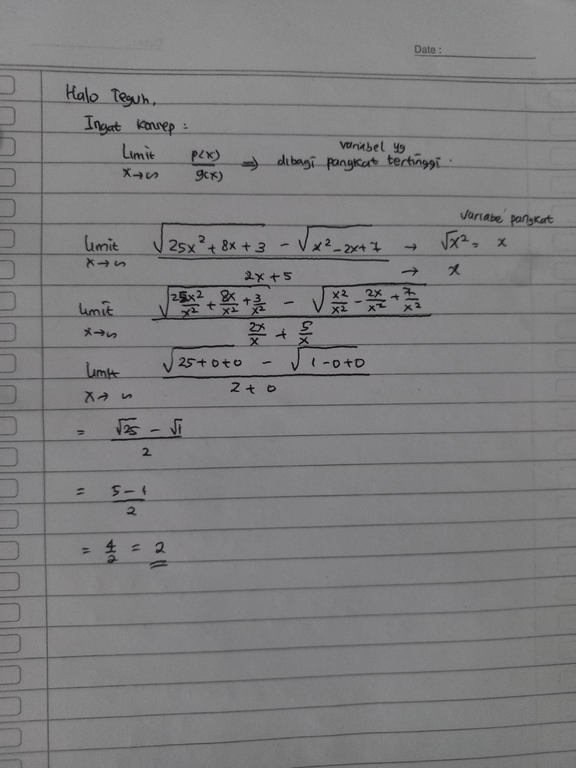 Date :
Halo Teguh,
Ingat konsep :
Limit x→∞ p(x)/g(x) ⇒ dibagi variabel yg pangkat tertinggi.
variabe pangkat
Limit x→∞ (√(25x² + 8x + 3) - √(x² - 2x + 7))/(2x + 5) → √x² = x → x
Limit x→∞ (√(25x²/x² + 8x/x² + 3/x²) - √(x²/x² - 2x/x² + 7/x²))/(2x/x + 5/x)
Limit x→∞ (√(25+0+0) - √(1-0+0))/(2 + 0)
= (√25 - √1)/2
= (5 - 1)/2
= 4/2 = 2